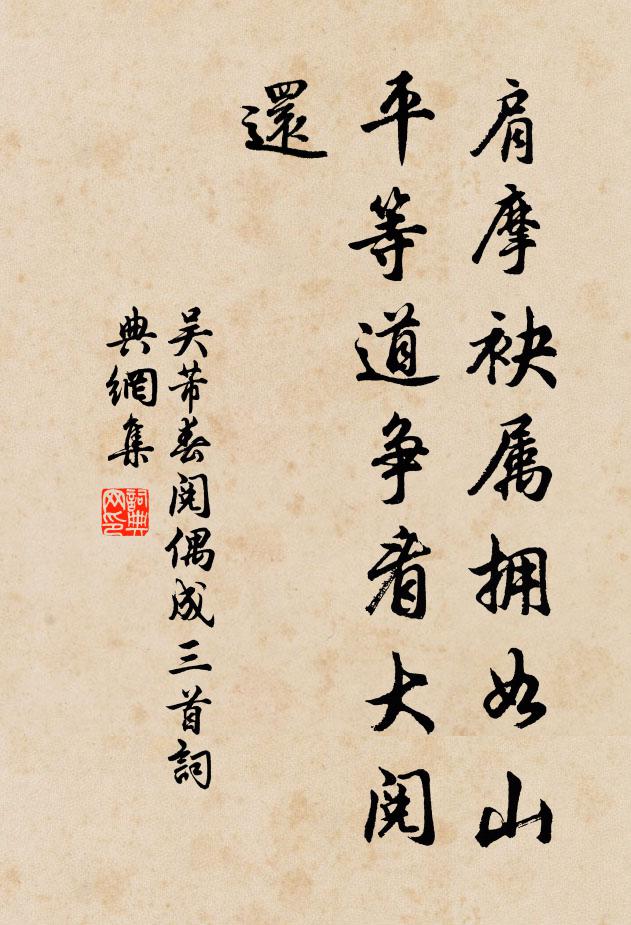 肩摩袂属拥如山
平等道争看大阅
還
吴芾春阅偶成三首詞
典網集
詞典网印